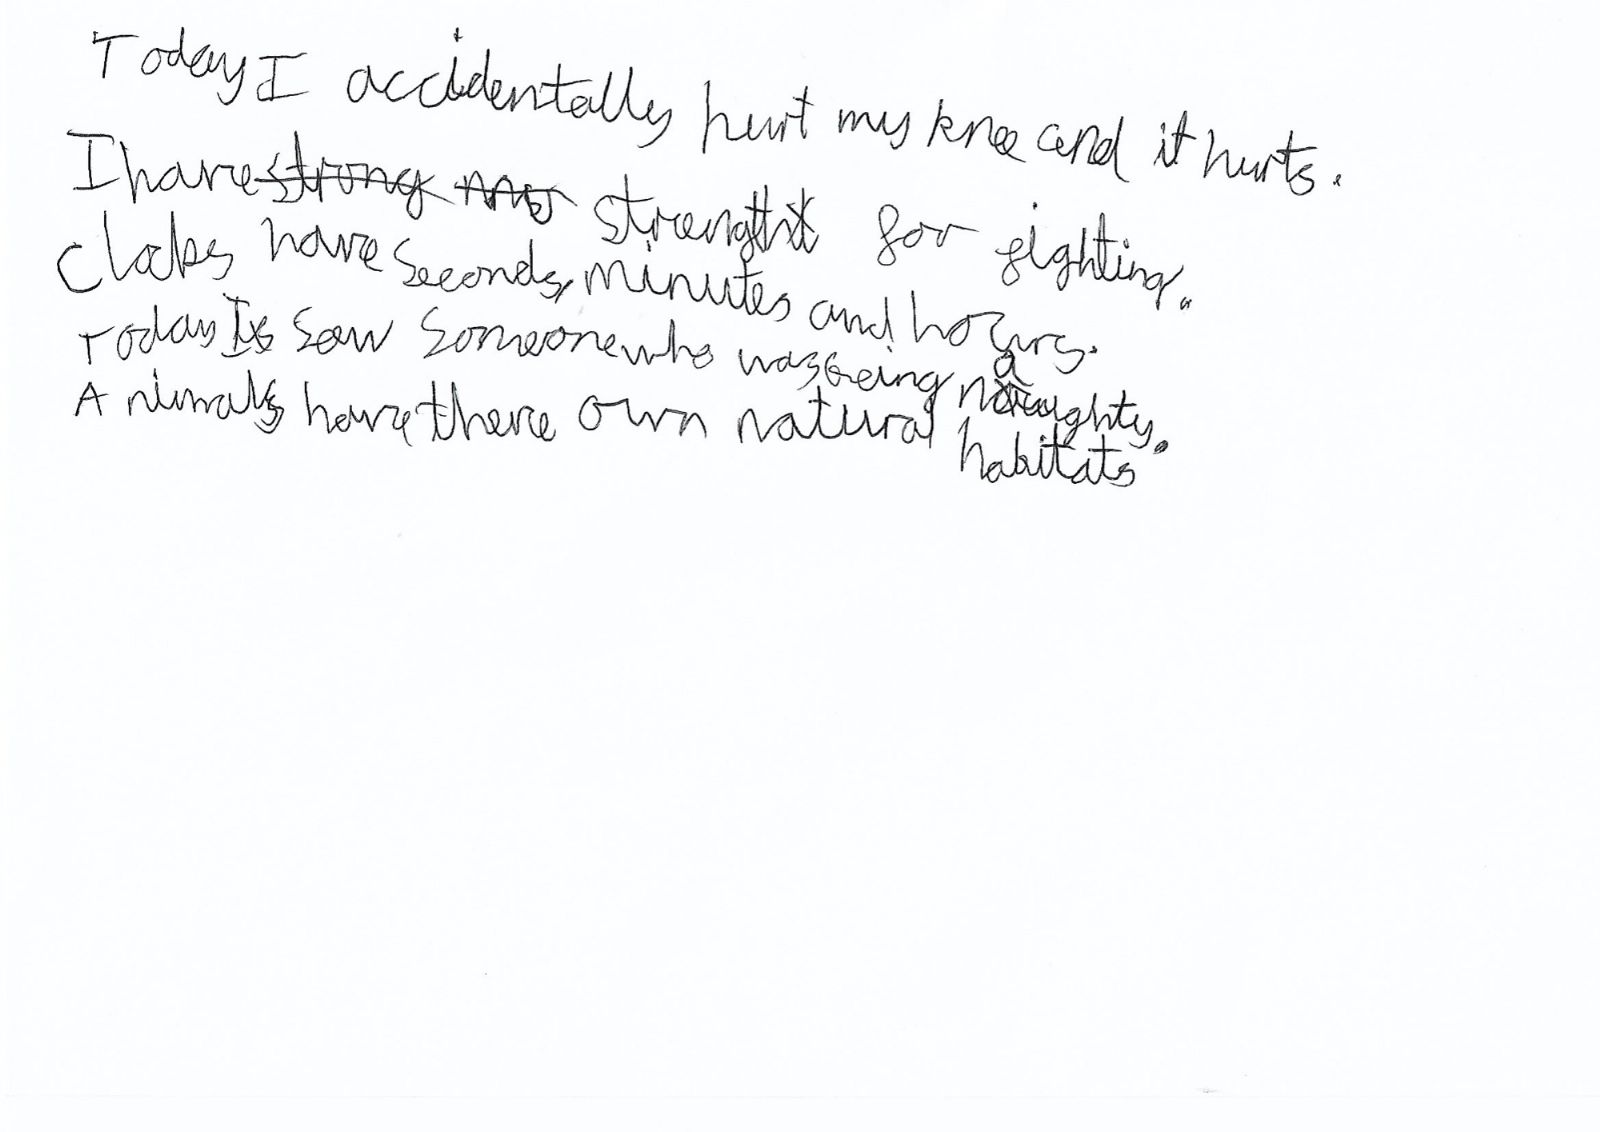 Today I accidentally hurt my knee and it hurts.
I have strong strength for fighting.
Clocks have seconds, minutes and hours.
Today I saw someone who was being naughty.
Animals have there own natural habitats